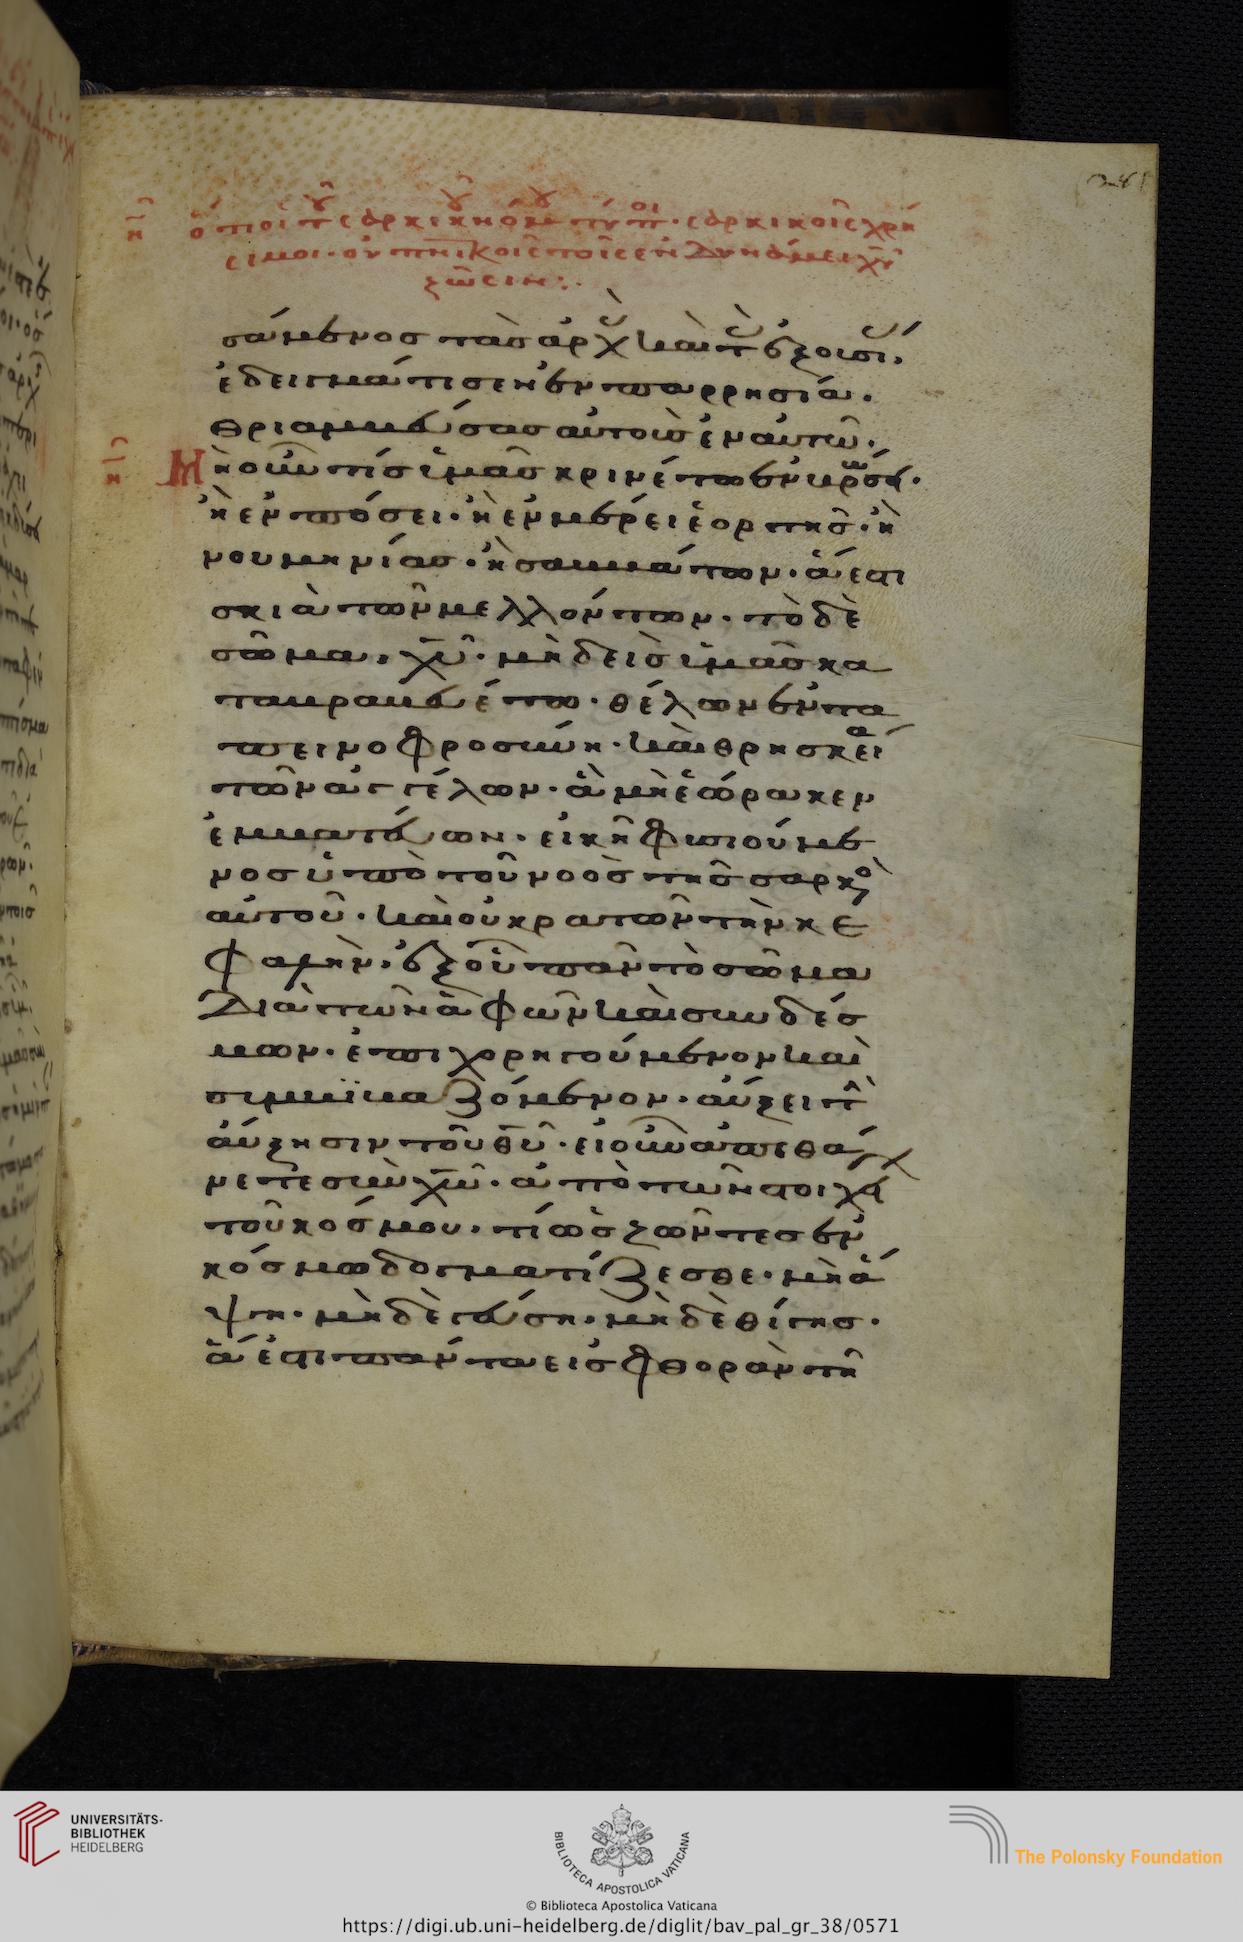 σάμενος τὰς ἀρχ κὰι τ ἐξουσί,
ἐδειγμάτισεν ἐν παρρησία.
θριαμβέυσας αὐτοὺς ἐν αὐτῶ.
Μὴ οὖν τίς ὑμᾶς κρινέτω ἐν βρώσει.
ἢ ἐν πόσει. ἢ ἐν μέρει ἑορτῆς. ἢ
νουμηνίας. ἢ σαββάτων. ἅ ἐστι
σκιὰ τῶν μελλόντων. τὸ δὲ
σῶμα, χῦ. μὴδεὶς ὑμᾶς κα
ταβραβευέτω. θέλων ἐν τα
πεινοφροσύνη. κὰι θρησκεία
τῶν ἀγγέλων. ἃ μὴ ἑώρακεν
ἐμβατέυων. εἰκῆ φυσιούμε
νος ὑπὸ τοῦ νοὸς τῆς σαρκὸ
αὐτοῦ. κὰι οὐ κρατῶν τὴν κε
φαλὴν. ἐξ οὗ πᾶν τὸ σῶμα
διὰ τῶν ἁφῶν κὰι συνδές
μων. ἐπιχορηγούμενον κὰι
συμβϊβαζόμενον. αὔξει τ
ἄυξησιν τοῦ θῦ. εἰ οὖν ἀπεθά
νετε σὺν χῶ. ἀπὸ τῶν στοιχεί
τοῦ κόσμου. τί ὡς ζῶντες ἐν
κόσμω δογματίζεσθε. μὴ ἅ
ψη. μὴδὲ γεύση. μὴδὲ θίγης.
ἅ ἐστι πάντα εἰς φθορὰν τῆ
UNIVERSITÄTS-
BIBLIOTHEK
HEIDELBERG
BIBLIOTECA APOSTOLICA VATICANA
The Polonsky Foundation
© Biblioteca Apostolica Vaticana
https://digi.ub.uni-heidelberg.de/diglit/bav_pal_gr_38/0571